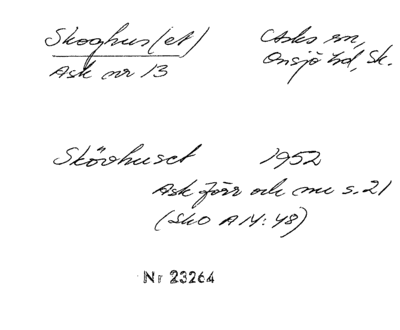 Skoghus(et) Asks sn,
Ask nr 13 Onsjö hd, Sk.
Skövhuset 1952
Ask förr och nu s. 21
(SkO AM: 48)
Nr 23264